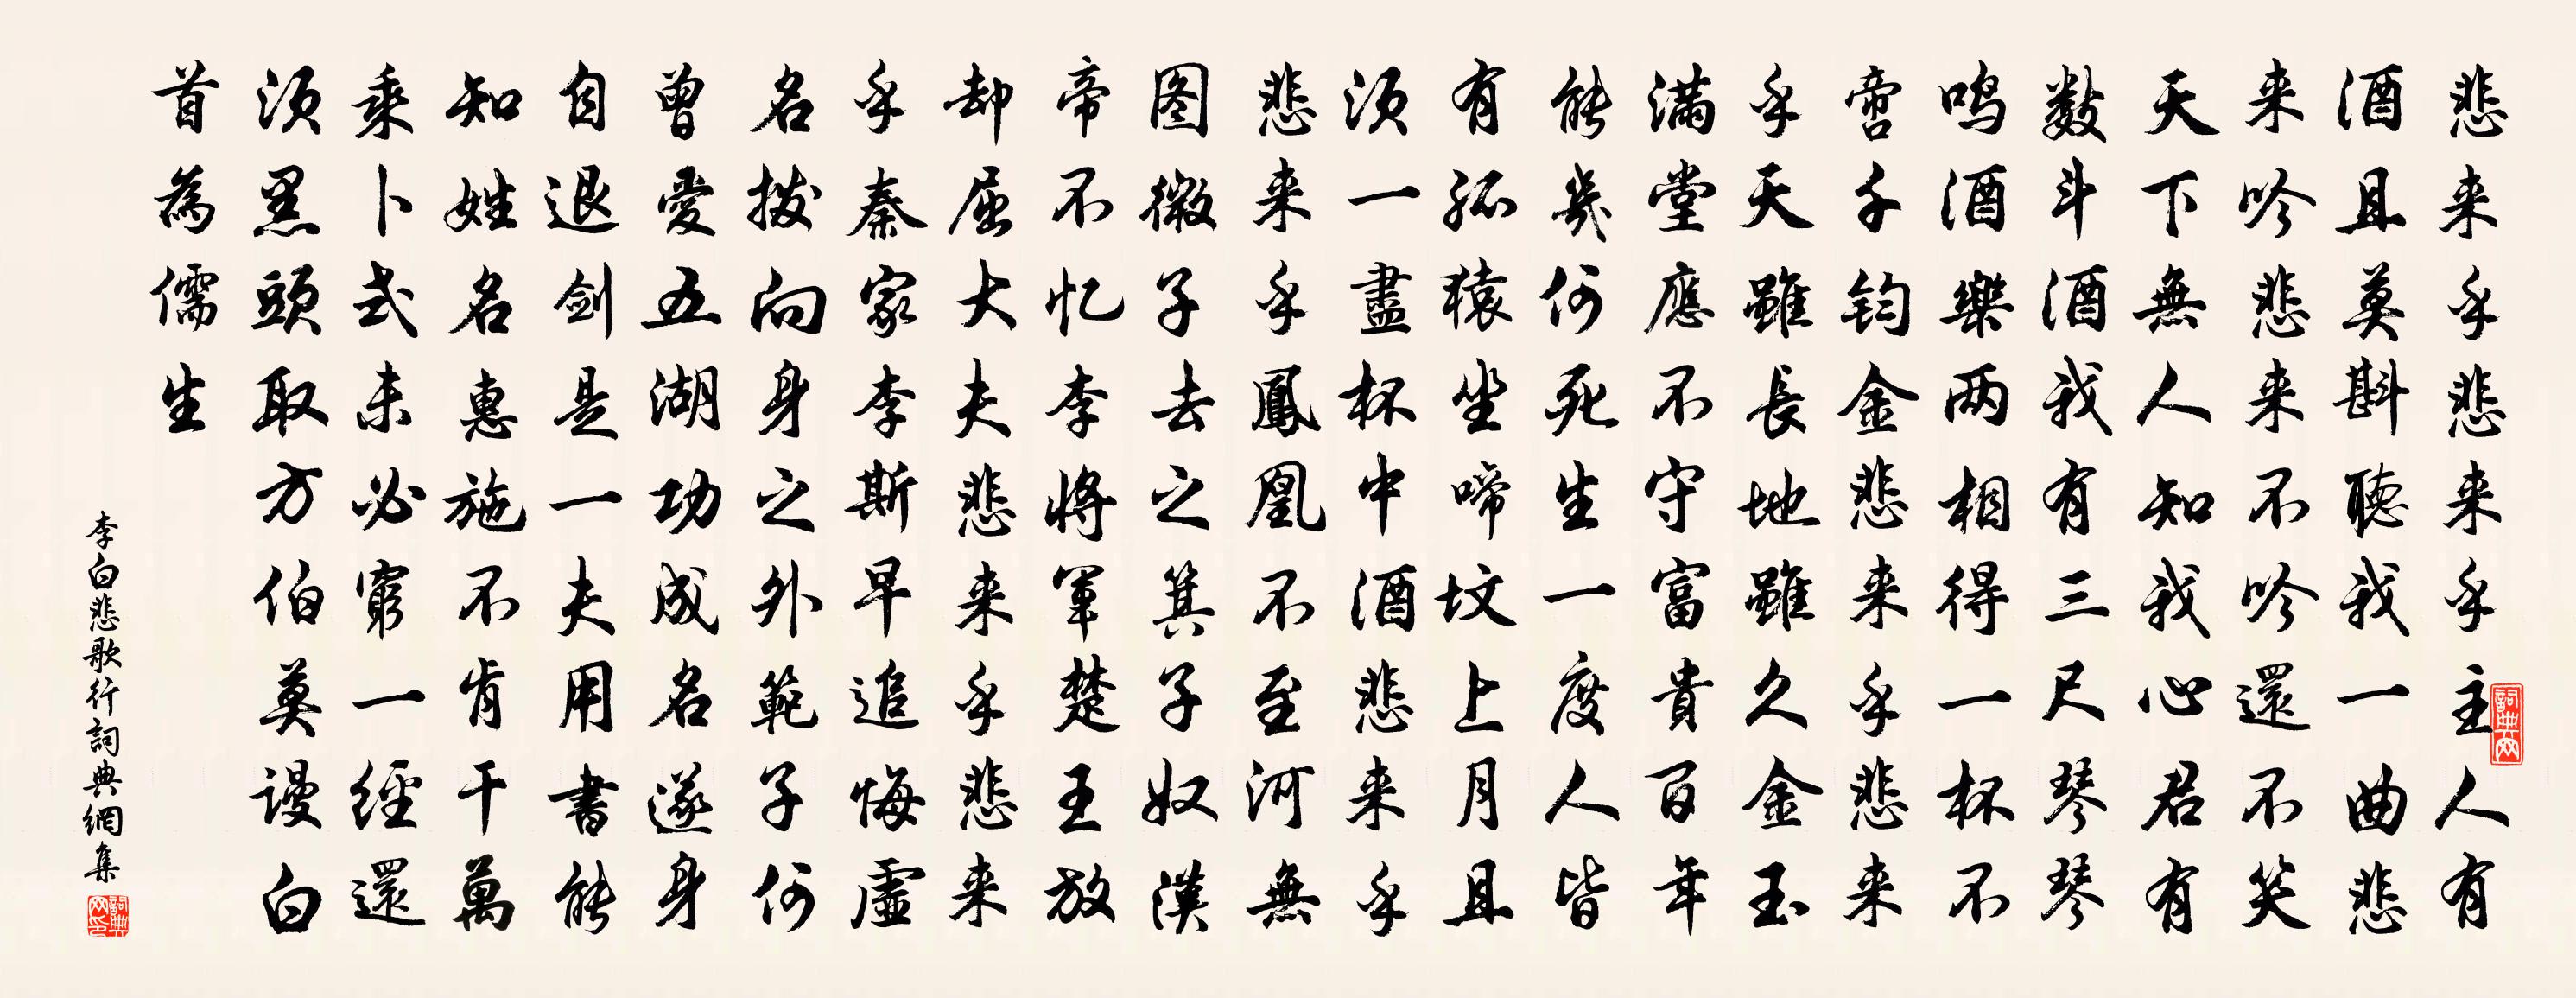 悲来乎悲来乎主人有
酒且莫斟聽我一曲悲
来吟悲来不吟還不笑
天下無人知我心君有
數斗酒我有三尺琴琴
鸣酒樂两相得一杯不
啻千钧金悲来乎悲来
乎天雖長地雖久金玉
滿堂應不守富貴百年
能幾何死生一度人皆
有孤猿坐啼坟上月且
須一盡杯中酒悲来乎
悲来乎鳳凰不至河無
图微子去之箕子奴漢
帝不忆李將軍楚王放
却屈大夫悲来乎悲来
乎秦家李斯早追悔虛
名拨向身之外範子何
曾愛五湖功成名遂身
自退剑是一夫用書能
知姓名惠施不肯干萬
乘卜式未必窮一經還
須黑頭取方伯莫谩白
首為儒生
李白悲歌行詞典網集
詞典网
詞典网印